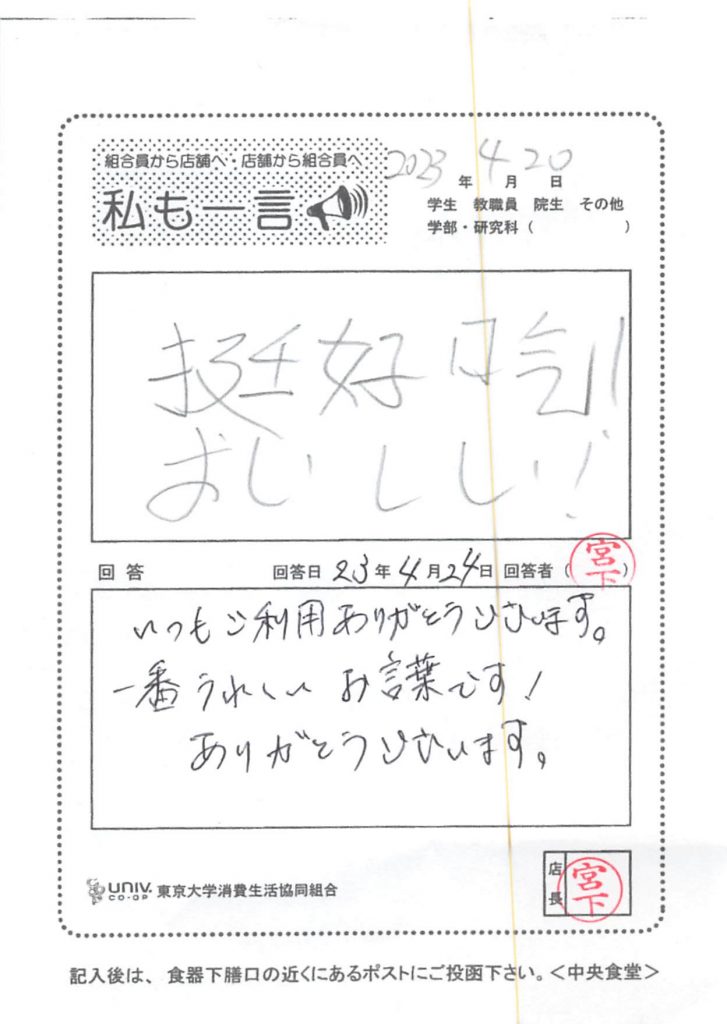 組合員から店舗へ・店舗から組合員へ
私も一言
2023年 4月 20日
学生 教職員 院生 その他
学部・研究科（ ）
挺好吃!!
おいししい!
回答 回答日 23年4月24日 回答者（宮下）
いつもご利用ありがとうございます。
一番うれしい お言葉です!
ありがとうございます。
店長 宮下
UNIV. CO-OP 東京大学消費生活協同組合
記入後は、食器下膳口の近くにあるポストにご投函下さい。＜中央食堂＞